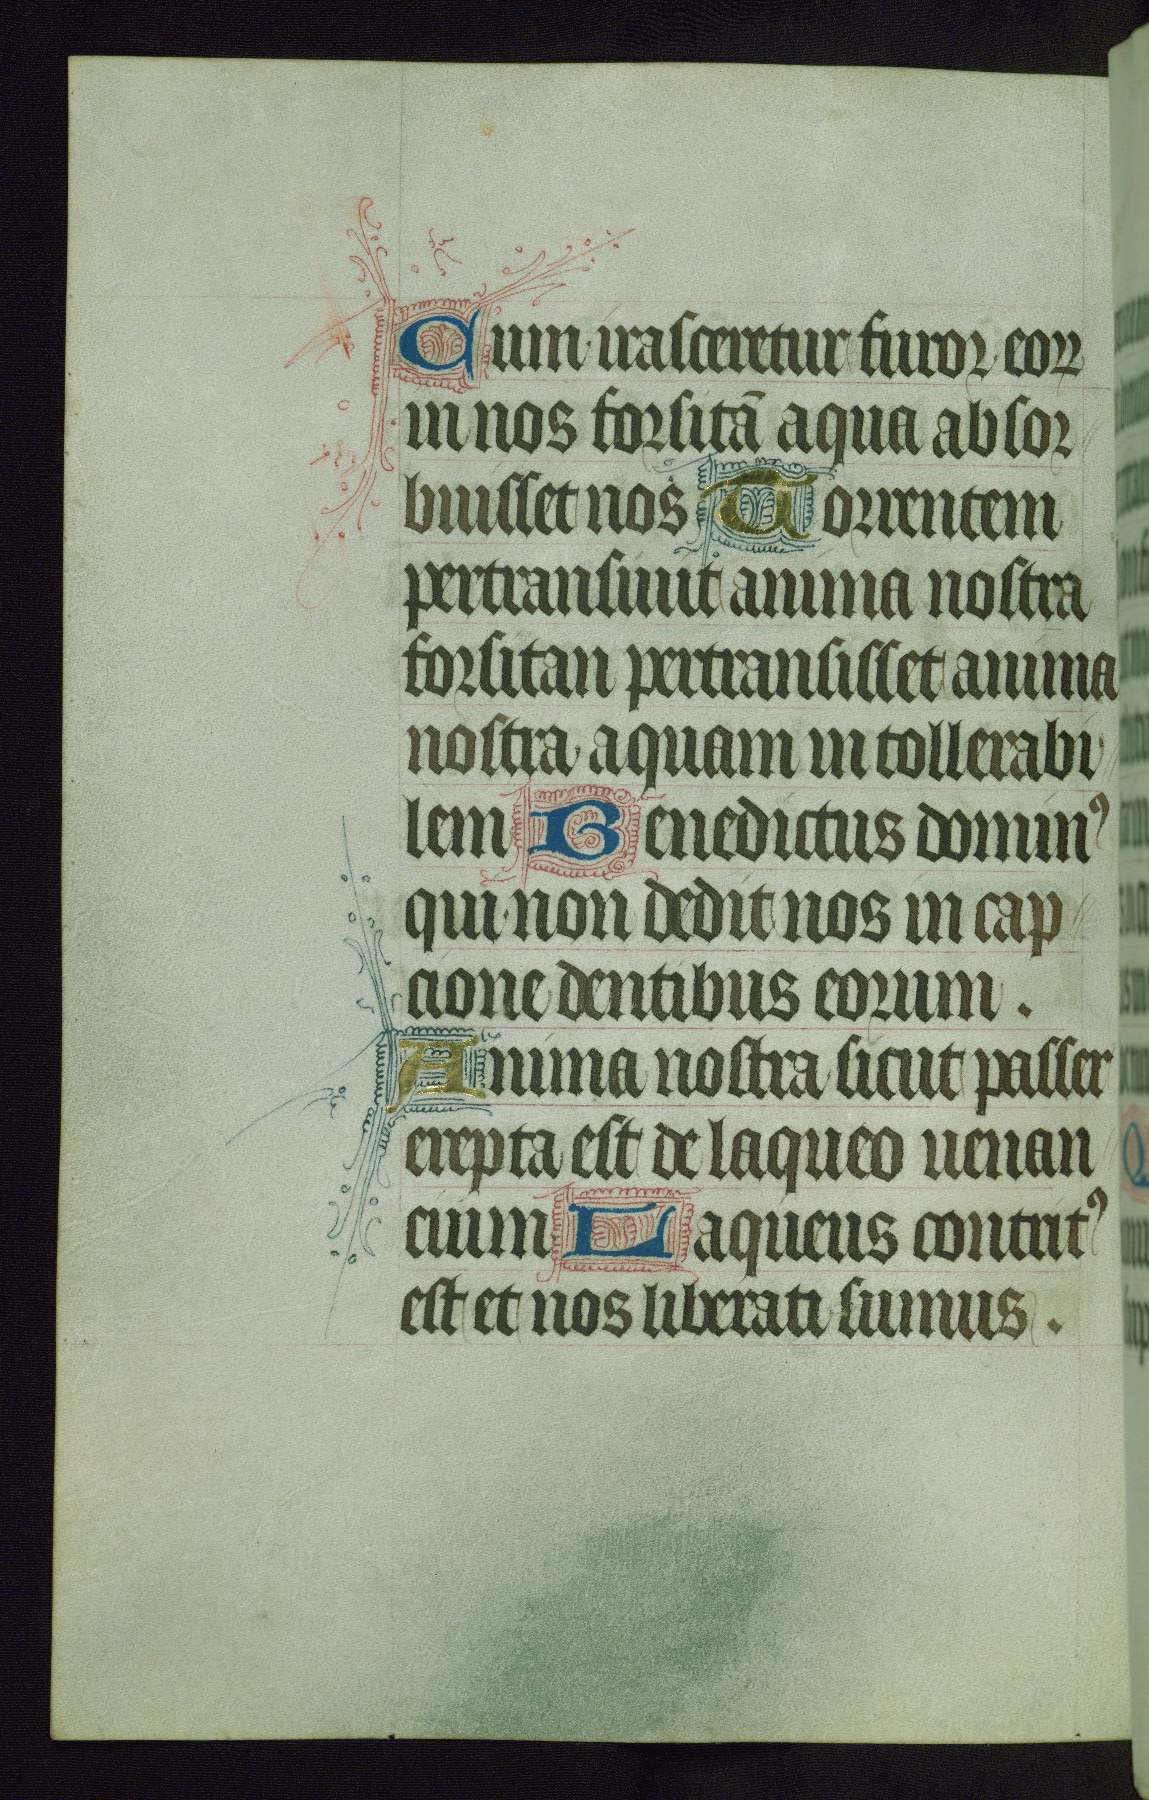 Cum irasceretur furor eoꝝ
in nos forsitā aqua absor
buisset nos Torrentem
pertransiuit anima nostra
forsitan pertransisset anima
nostra aquam in tollerabi
lem Benedictus dominꝰ
qui non dedit nos in cap
cione dentibus eorum .
Anima nostra sicut passer
erepta est de laqueo uenan
cium Laqueus contritꝰ
est et nos liberati sumus .